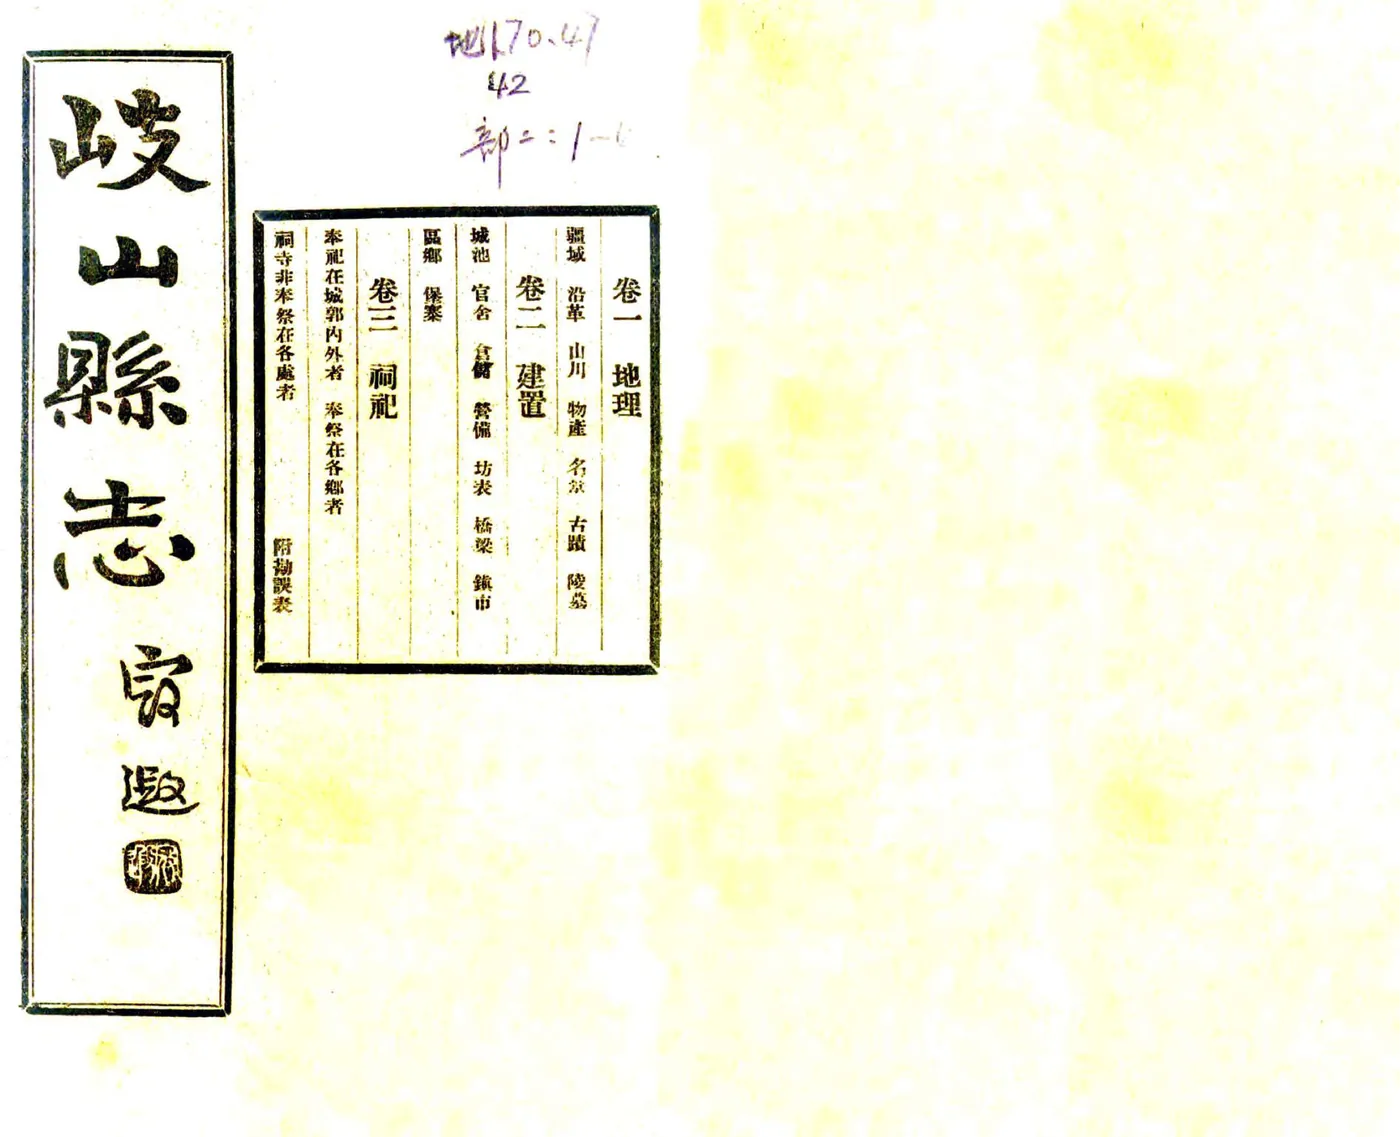 地170.47
42
部二:1-6
卷一 地理
疆域 沿革 山川 物產 名宦 古蹟 陵墓
卷二 建置
城池 官舍 倉儲 營備 坊表 橋梁 鎮市
區鄉 堡寨
卷三 祠祀
奉祀在城郭內外者 奉祭在各鄉者
祠寺非奉祭在各處者 附勘誤表
岐山縣志